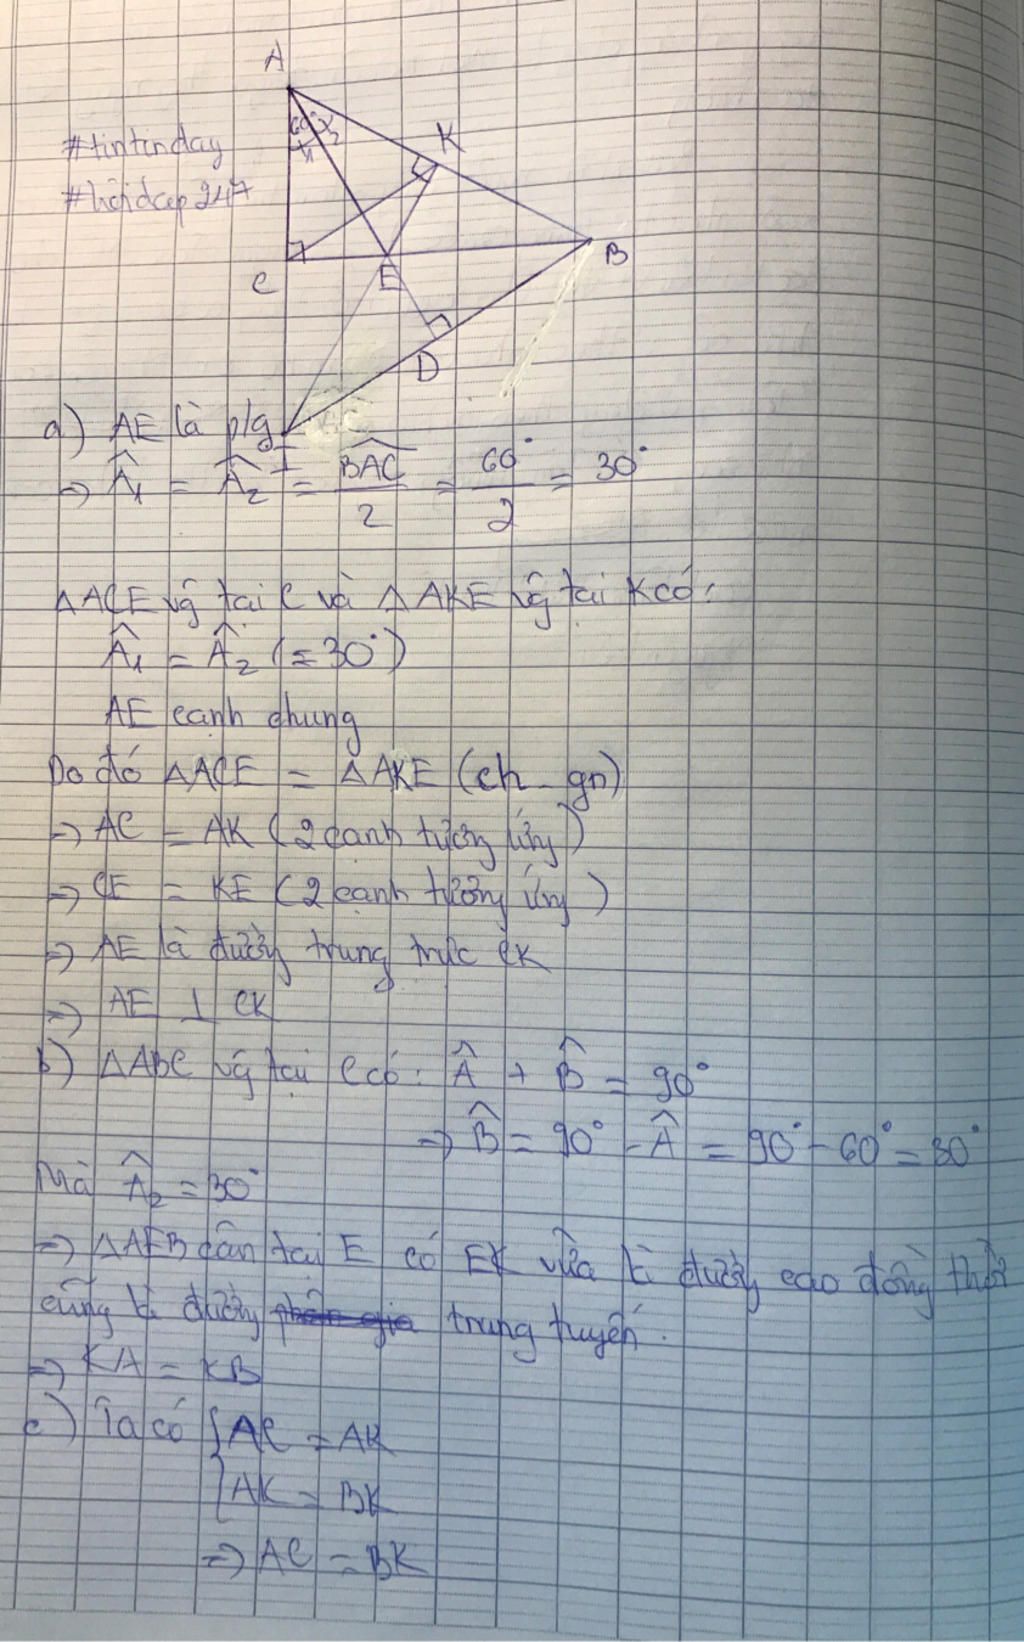 A
60°
1
2
K
#tintinday
#hoidap247
C
E
B
D
a) AE là p/g
I
=> Â₁ = Â₂ = BAC/2 = 60°/2 = 30°
ΔACE vg tại C và ΔAKE vg tại K có:
Â₁ = Â₂ (=30°)
AE cạnh chung
Do đó ΔACE = ΔAKE (ch - gn)
=> AC = AK (2 cạnh tương ứng)
=> CE = KE (2 cạnh tương ứng)
=> AE là đường trung trực CK
=> AE ⊥ CK
b) ΔABC vg tại C có: Â + B̂ = 90°
=> B̂ = 90° - Â = 90° - 60° = 30°
Mà Â₂ = 30°
=> ΔAEB cân tại E có EK vừa là đường cao đồng thời
cũng là đường trung tuyến.
=> KA = KB
c) Ta có { AC = AK
AK = BK
=> AC = BK